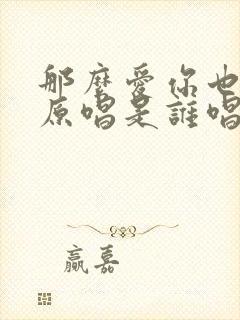 那麼愛你也
原唱是誰唱
贏嘉